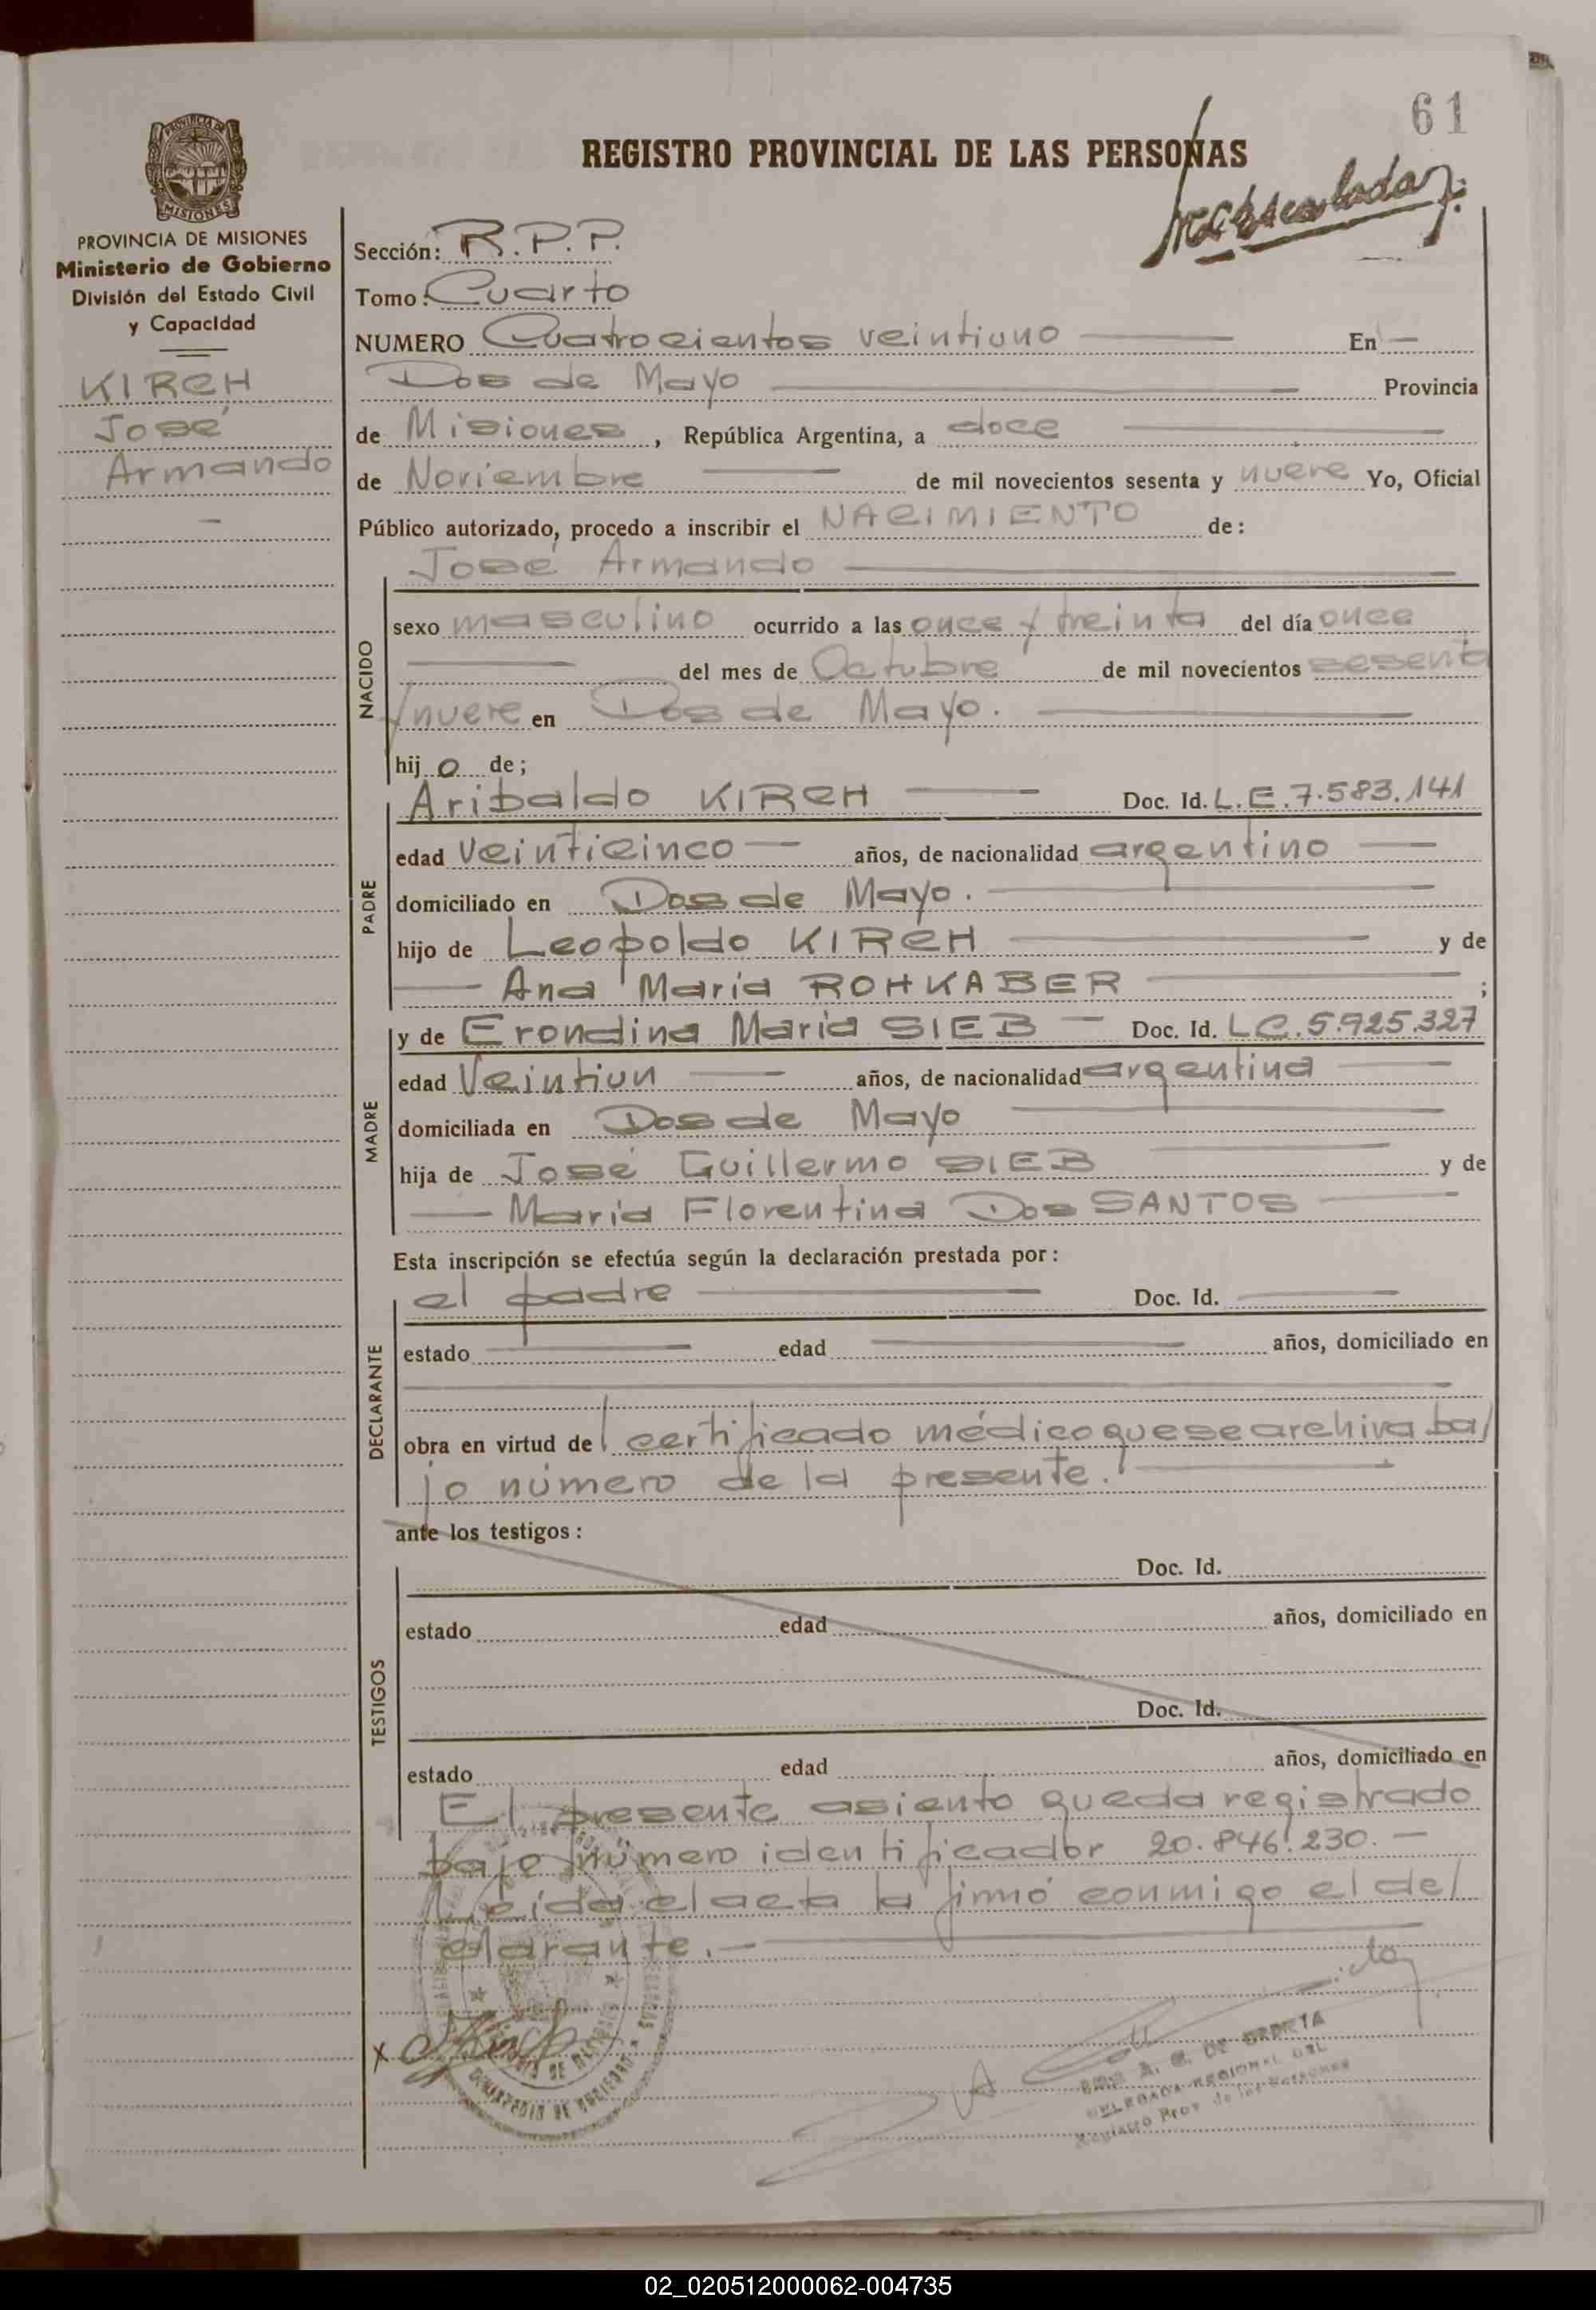 61
REGISTRO PROVINCIAL DE LAS PERSONAS
PROVINCIA DE
MISIONES
PROVINCIA DE MISIONES
Ministerio de Gobierno
División del Estado Civil
y Capacidad
KIRCH
José
Armando
Sección: R.P.P.
Tomo: Cuarto
NUMERO Cuatrocientos veintiuno En
Dos de Mayo Provincia
de Misiones, República Argentina, a doce
de Noviembre de mil novecientos sesenta y nueve Yo, Oficial
Público autorizado, procedo a inscribir el NACIMIENTO de:
José Armando
NACIDO
sexo masculino ocurrido a las once y treinta del día once
del mes de Octubre de mil novecientos sesenta
y nueve en Dos de Mayo.
hijo de;
PADRE
Aribaldo KIRCH Doc. Id. L.E.7.583.141
edad veinticinco años, de nacionalidad argentino
domiciliado en Dos de Mayo.
hijo de Leopoldo KIRCH y de
Ana María ROHKABER ;
MADRE
y de Erondina María SIEB Doc. Id. L.C.5.925.327
edad Veintiun años, de nacionalidad argentina
domiciliada en Dos de Mayo
hija de José Guillermo SIEB y de
María Florentina Dos SANTOS
Esta inscripción se efectúa según la declaración prestada por:
DECLARANTE
el padre Doc. Id.
estado edad años, domiciliado en
obra en virtud del certificado médico que se archiva ba/
jo número de la presente.
ante los testigos:
TESTIGOS
Doc. Id.
estado edad años, domiciliado en
Doc. Id.
estado edad años, domiciliado en
El presente asiento queda registrado
bajo número identificador 20.846.230.—
Leida el acta la firmó conmigo el de/
clarante.—
x Kirch
A. G. DE
DELEGADA REGIONAL DEL
Registro Prov de las Personas
02_020512000062-004735